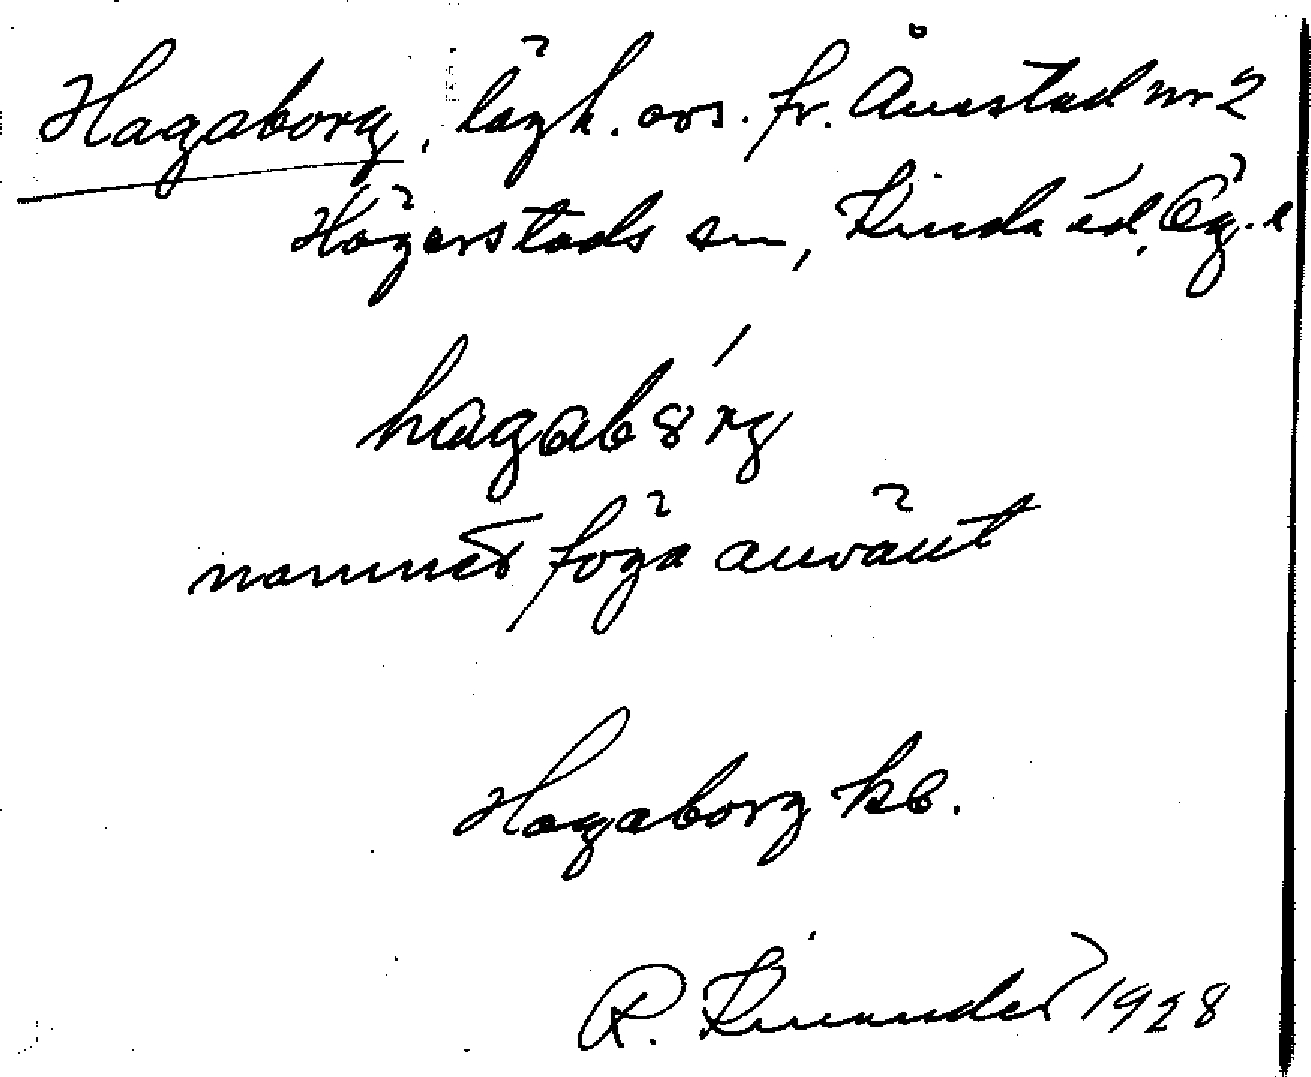 Hagaborg, lägh. avs. fr. Åvestad nr 2
Hägerstads sn, Kinda hd, Ög. l
hagabórg
namnet föga använt
Hagaborg kb.
R. Kinander 1928